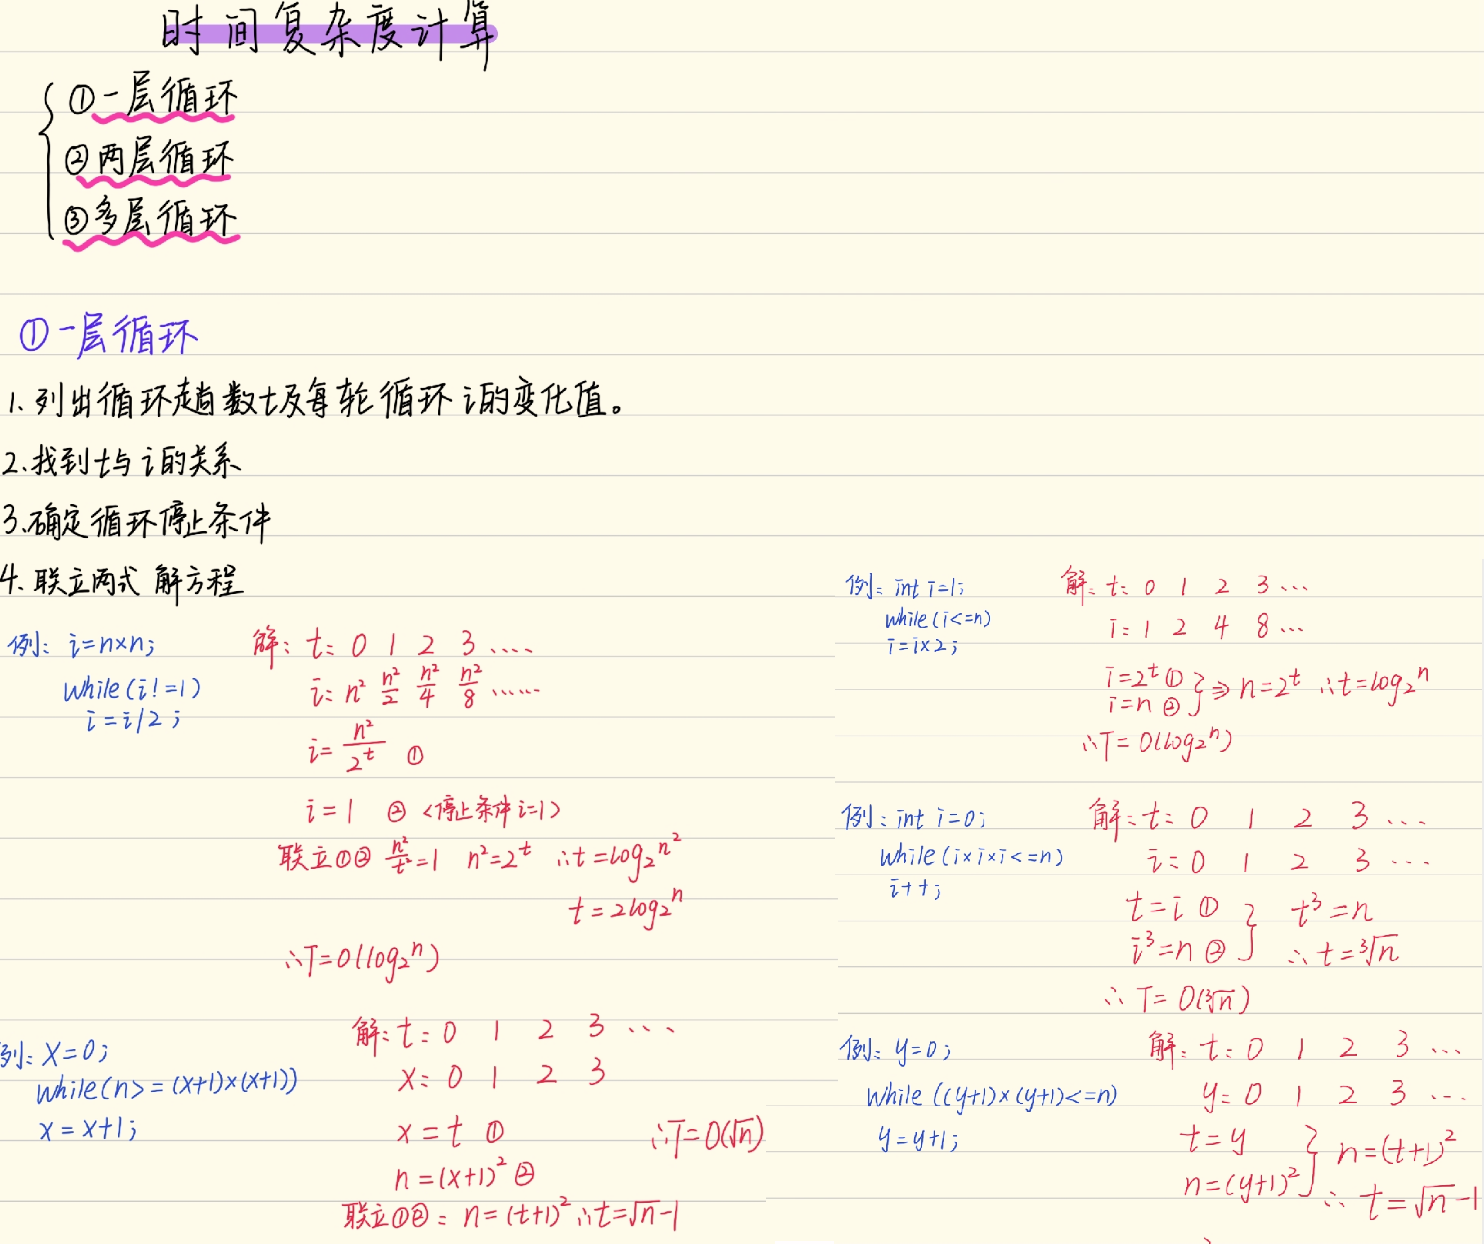 时间复杂度计算
①一层循环
②两层循环
③多层循环
①一层循环
1.列出循环趟数t及每轮循环i的变化值。
2.找到t与i的关系
3.确定循环停止条件
4.联立两式 解方程
例: i=n×n;
while(i!=1)
i=i/2;
解: t: 0 1 2 3 ....
i: n² n²/2 n²/4 n²/8 ......
i=n²/2^t ①
i=1 ② <停止条件i=1>
联立①② n²/t²=1 n²=2^t ∴t=log₂n²
t=2log₂n
∴T=O(log₂n)
例: x=0;
while(n>=(x+1)×(x+1))
x=x+1;
解: t: 0 1 2 3 ...
x: 0 1 2 3
x=t ①
n=(x+1)² ②
联立①②: n=(t+1)² ∴t=√n-1
∴T=O(√n)
例: int i=1;
while(i<=n)
i=i×2;
解: t: 0 1 2 3 ...
i: 1 2 4 8 ...
i=2^t ①
i=n ② } ⇒ n=2^t ∴t=log₂n
∴T=O(log₂n)
例: int i=0;
while(i×i×i<=n)
i++;
解: t: 0 1 2 3 ...
i: 0 1 2 3 ...
t=i ① } t³=n
i³=n ② ∴t=³√n
∴T=O(³√n)
例: y=0;
while((y+1)×(y+1)<=n)
y=y+1;
解: t: 0 1 2 3 ...
y: 0 1 2 3 ...
t=y } n=(t+1)²
n=(y+1)² ∴t=√n-1